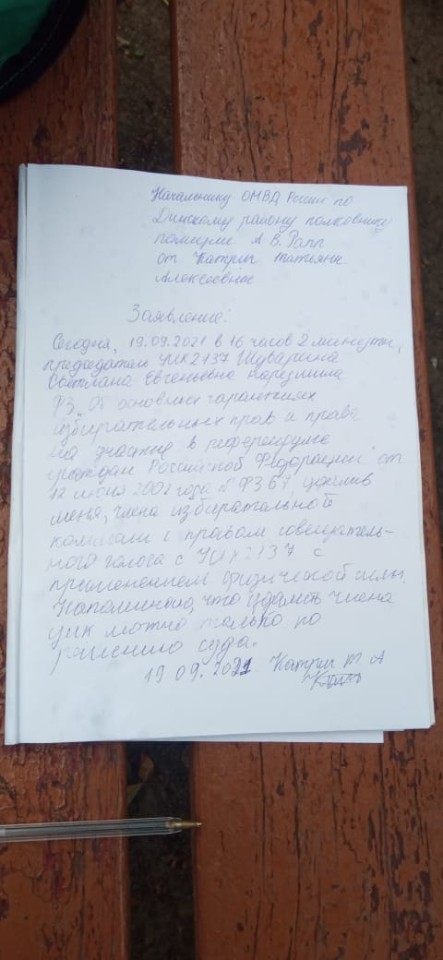 Начальнику ОМВД России по
Динскому району полковнику
полиции А В. Папп
от Катрич Татьяны
Алексеевны
Заявление.
Сегодня, 19.09.2021 в 16 часов 2 минуты,
председатель УИК2137 Шуваркина
Светлана Евгеньевна нарушила
ФЗ "Об основных гарантиях
избирательных прав и права
на участие в референдуме
граждан Российской Федерации" от
12 июня 2002 года N ФЗ 67, удалив
меня, члена избирательной
комиссии с правом совещатель-
ного голоса с УИК2137 с
применением физической силы.
Напоминаю, что удалить члена
УИК можно только по
решению суда.
19 09. 2021 Катрич Т А